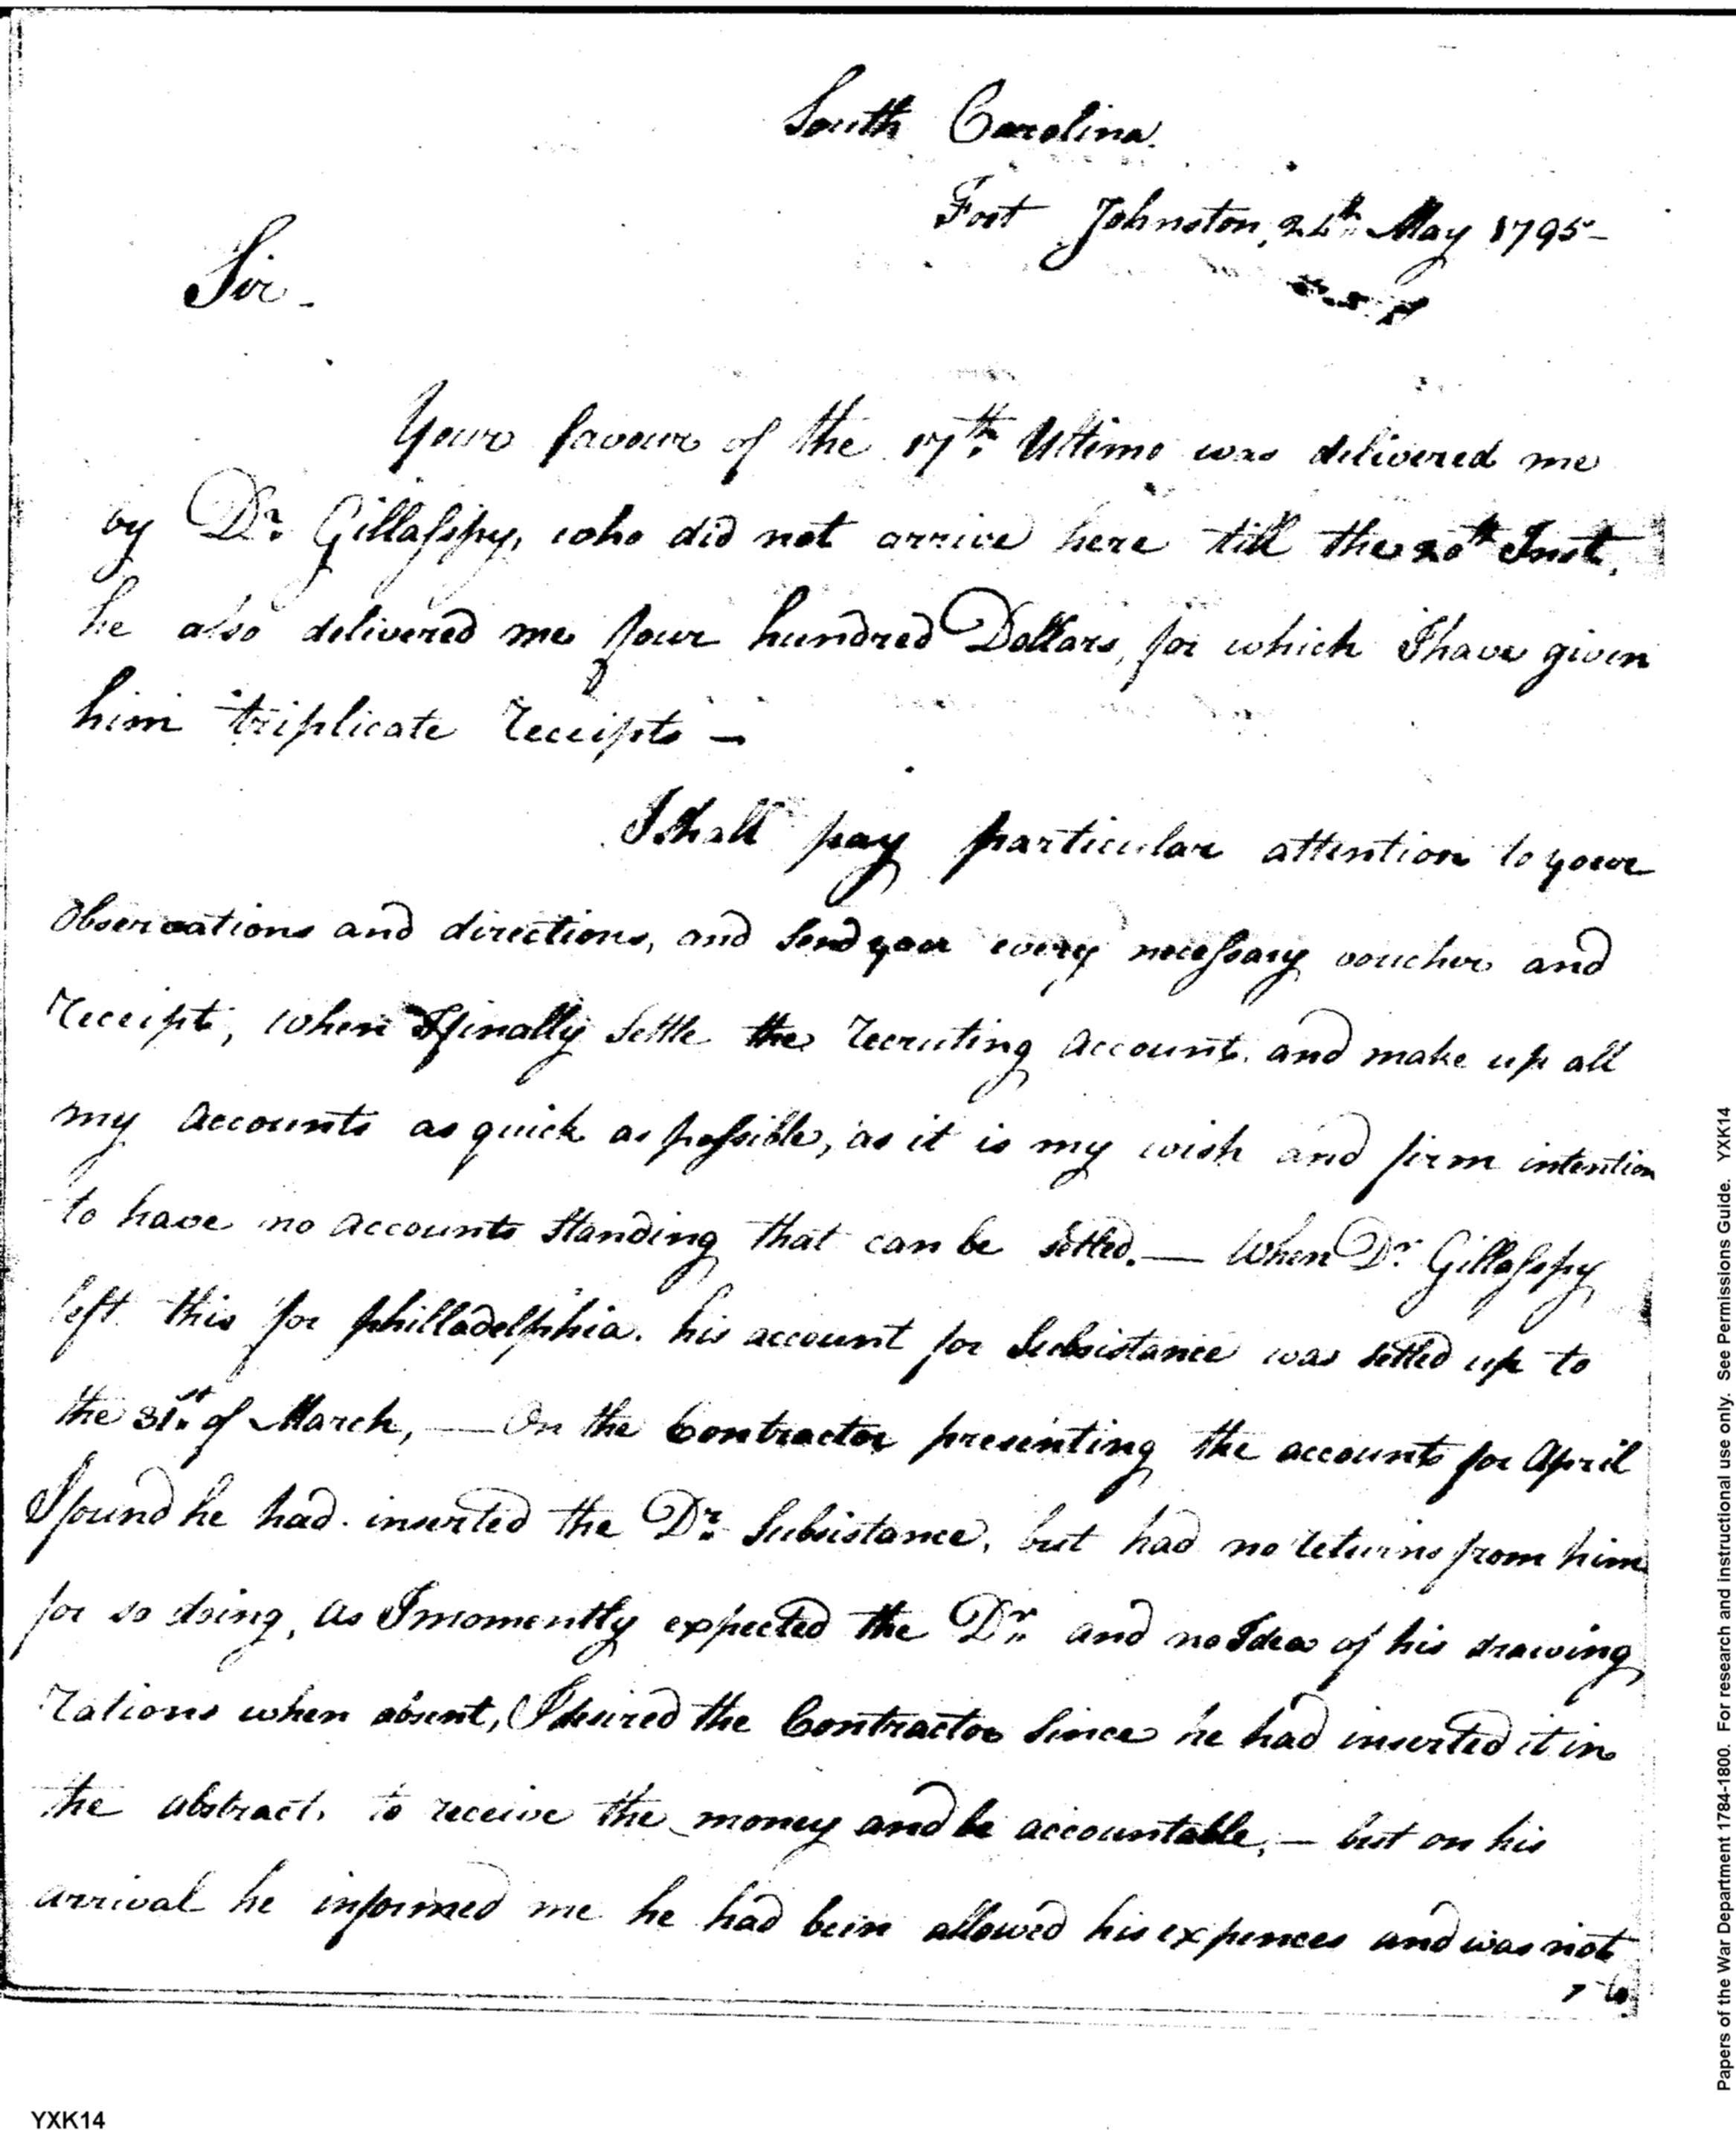 South Carolina.
Fort Johnston, 24th May 1795 –
Sir –
Your favour of the 17th Ultimo was delivered me
by Dr. Gillasspy, who did not arrive here till the 20th Inst,
he also delivered me four hundred Dollars, for which I have given
him triplicate receipts —
I shall pay particular attention to your
observations and directions, and send you every necessary voucher and
receipt, when I finally settle the recruting account, and make up all
my accounts as quick as possible, as it is my wish and firm intention
to have no accounts standing that can be setled. — When Dr. Gillasspy
left this for philladelphia. his account for Subsistance was setled up to
the 31st. of March, — On the Contractor presenting the accounts for April
I found he had inserted the Dr. Subsistance, but had no returns from him
for so doing, as I momently expected the Dr. and no Idea of his drawing
rations when absent, I desired the Contractor since he had inserted it in
the abstract, to receive the money and be accountable, — but on his
arrival he informed me he had been allowed his expences and was not
to
YXK14
Papers of the War Department 1784-1800. For research and instructional use only. See Permissions Guide. YXK14